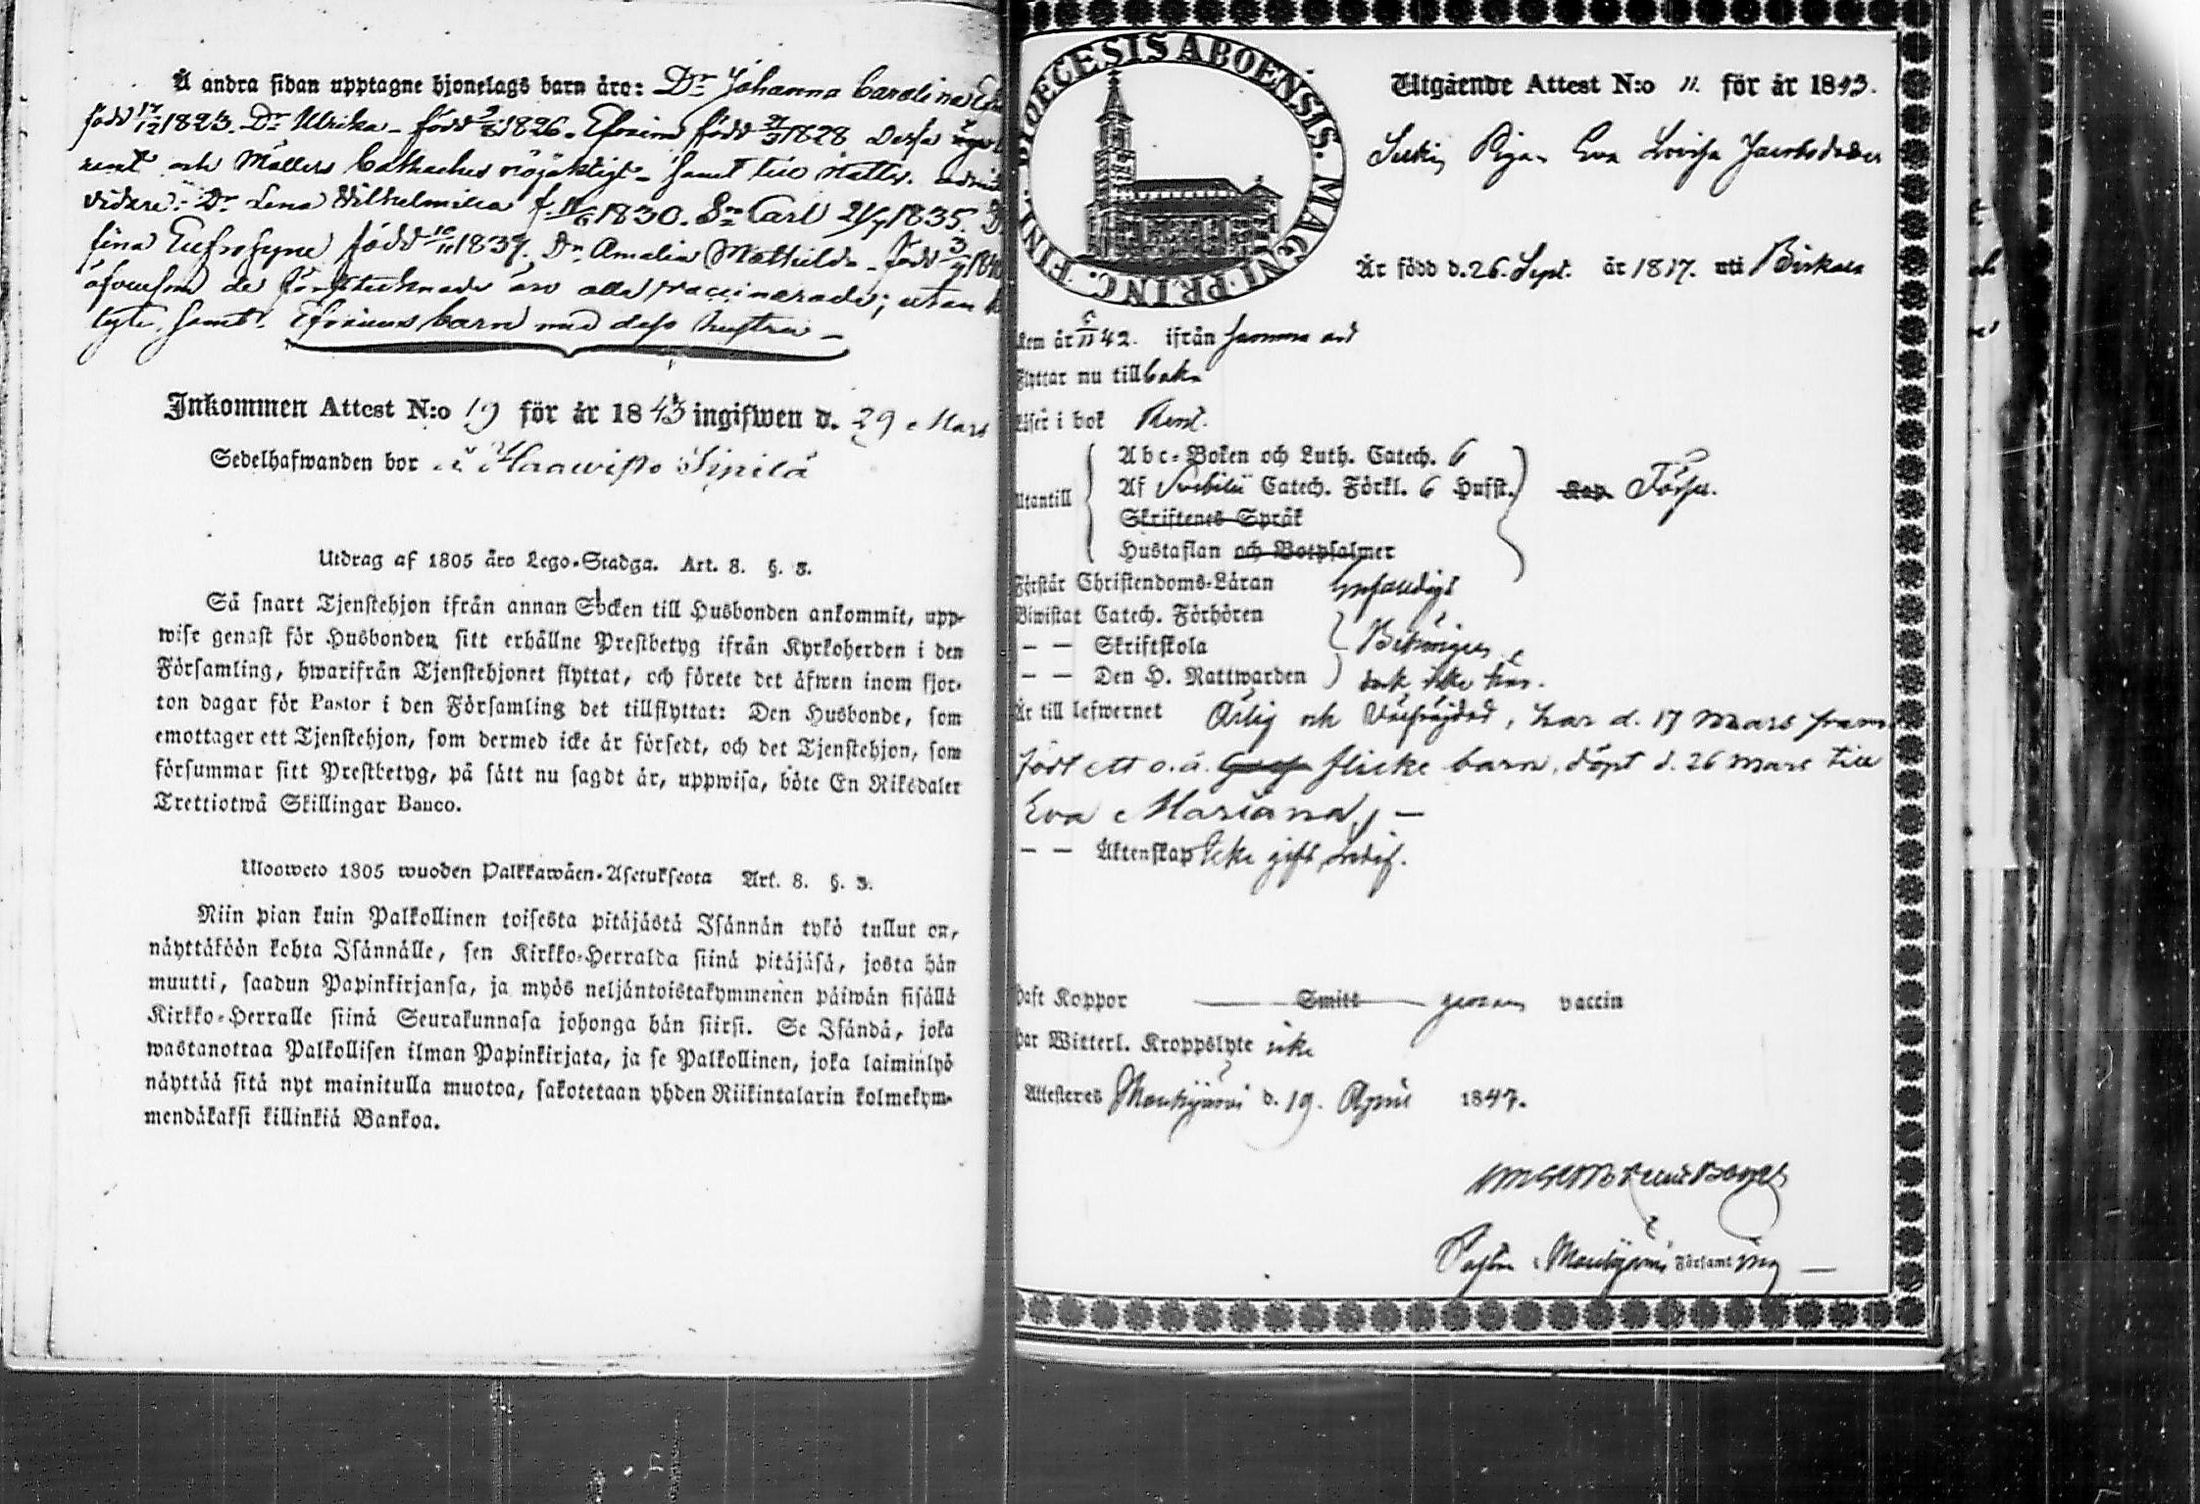 Å andra sidan upptagne hjonelags barn äro: Dr Johanna Carolina
född 17/12 1823. Dr Ulrika - född 1826. Efraim född 1828 Dessa
rent och Möllers samt
vidare. Dr Lena Wilhelmina f. 1830. Sn Carl 1835.
fina Eufrosyne född 1837. Dr Amalia Mathilda - född
äfvensom de äro alla vaccinerade; utan
lyte, samt Efraims barn med dess hustru -
Inkommen Attest N:o 19 för år 1843 ingifwen d. 29 Mars
Sedelhafwanden bor i Haawisto Sipilä
Utdrag af 1805 åro Lego-Stadga. Art. 8. §. 3.
Så snart Tjenstehjon ifrån annan Socken till Husbonden ankommit, upp-
wise genast för Husbonden sitt erhållne Prestbetyg ifrån Kyrkoherden i den
Församling, hwarifrån Tjenstehjonet flyttat, och förete det äfwen inom fjor-
ton dagar för Pastor i den Församling det tillflyttat: Den Husbonde, som
emottager ett Tjenstehjon, som dermed icke är försedt, och det Tjenstehjon, som
försummar sitt Prestbetyg, på sätt nu sagdt är, uppwisa, böte En Riksdaler
Trettiotwå Skillingar Banco.
Uloosweto 1805 wuoden Palkkawäen-Asetuksesta Art. 8. §. 3.
Niin pian kuin Palkollinen toisesta pitäjästä Isännän tykö tullut on,
näyttäköön kohta Isännälle, sen Kirkko-Herralda siinä pitäjäsä, josta hän
muutti, saadun Papinkirjansa, ja myös neljäntoistakymmenen päiwän sisällä
Kirkko-Herralle siinä Seurakunnasa johonga hän siirsi. Se Isändä, joka
wastanottaa Palkollisen ilman Papinkirjata, ja se Palkollinen, joka laiminlyö
näyttää sitä nyt mainitulla muotoa, sakotetaan yhden Riikintalarin kolmekym-
mendäkaksi killinkiä Bankoa.
DIOECESIS ABOENSIS. MAGNI PRINC. FINL.
Utgående Attest N:o 11. för år 1843.
Pigan Eva Lovisa Jacobsdotter
Är född d. 26. Sept. år 1817. uti Birkala
Kom år 42. ifrån samma ort
Flyttar nu tillbaka
Läser i bok Rent.
Utantill
Abc-Boken och Luth. Catech. 6
Af Svebilii Catech. Förkl. 6 Hufst.
Skriftenes Språk
Hustaflan och Botpsalmer
Förstår Christendoms-Läran
Biwistat Catech. Förhören
— — Skriftskola
— — Den H. Nattwarden
dock icke här.
Är till lefwernet Ärlig och Välfrejdad, har d. 17 Mars fram
född ett o.ä. flicke barn, döpt d. 26 Mars till
Eva Mariana, —
— — Äktenskap Icke gift
Haft Koppor Smitt genom vaccin
Har Witterl. Kroppslyte icke
Attesteres Mouhijärvi d. 19. April 1843.
Pastor i Mouhijärvi Församling —